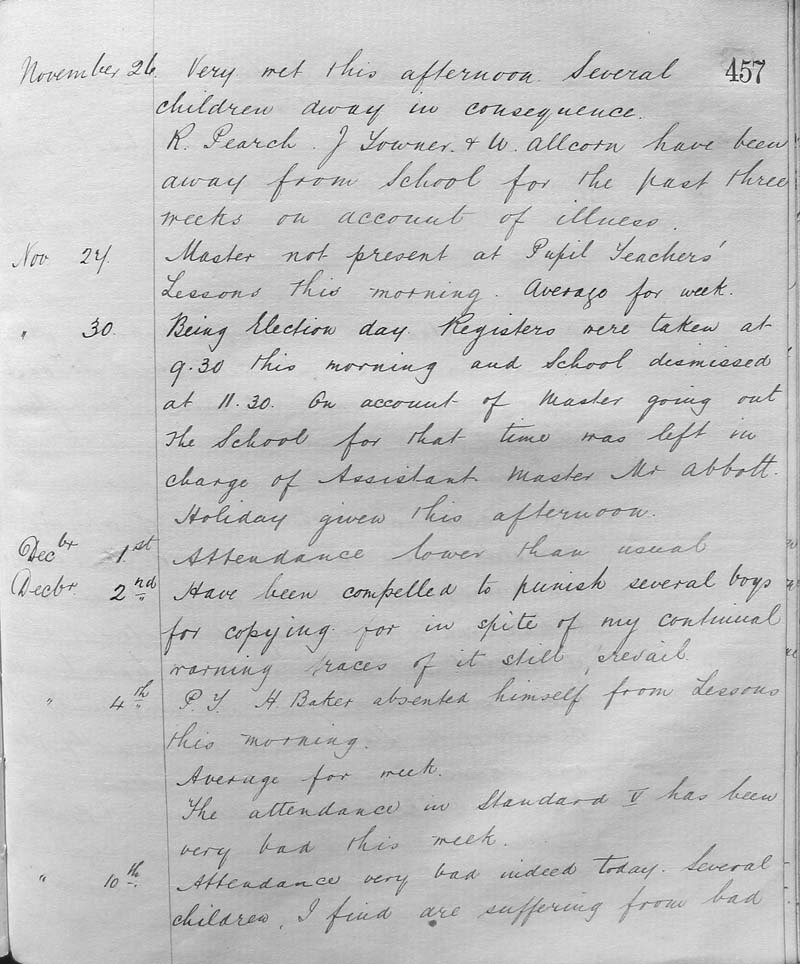 457
November 26. Very wet this afternoon. Several
children away in consequence.
R. Pearch. J Towner. & W. Allcorn have been
away from School for the past three
weeks on account of illness.
Nov 27. Master not present at Pupil Teachers'
Lessons this morning. Average for week.
" 30. Being Election day. Registers were taken at
9.30 this morning and School dismissed
at 11.30. On account of Master going out
the School for that time was left in
charge of Assistant Master Mr Abbott.
Holiday given this afternoon.
Decbr 1st Attendance lower than usual
Decbr 2nd Have been compelled to punish several boys
for copying for in spite of my continual
warning traces of it still prevail.
" 4th P. T. H. Baker absented himself from Lessons
this morning.
Average for week.
The attendance in Standard V has been
very bad this week.
" 10th. Attendance very bad indeed today. Several
children, I find are suffering from bad